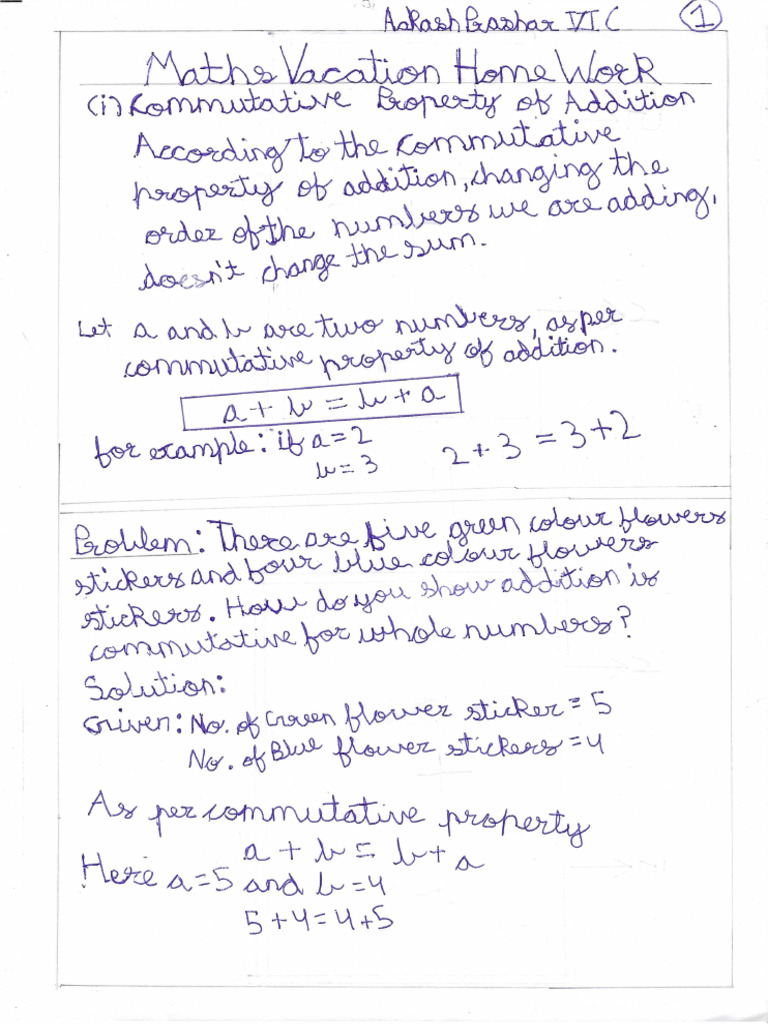 Aakash Prashar VI C 1
Maths Vacation Home Work
(i) Commutative Property of Addition
According to the commutative
property of addition, changing the
order of the numbers we are adding,
doesn't change the sum.
Let a and b are two numbers, as per
commutative property of addition.
a + b = b + a
for example: if a = 2
b = 3 2 + 3 = 3 + 2
Problem: There are five green colour flowers
stickers and four blue colour flowers
stickers. How do you show addition is
commutative for whole numbers?
Solution:
Given: No. of Green flower sticker = 5
No. of Blue flower stickers = 4
As per commutative property
a + b = b + a
Here a = 5 and b = 4
5 + 4 = 4 + 5